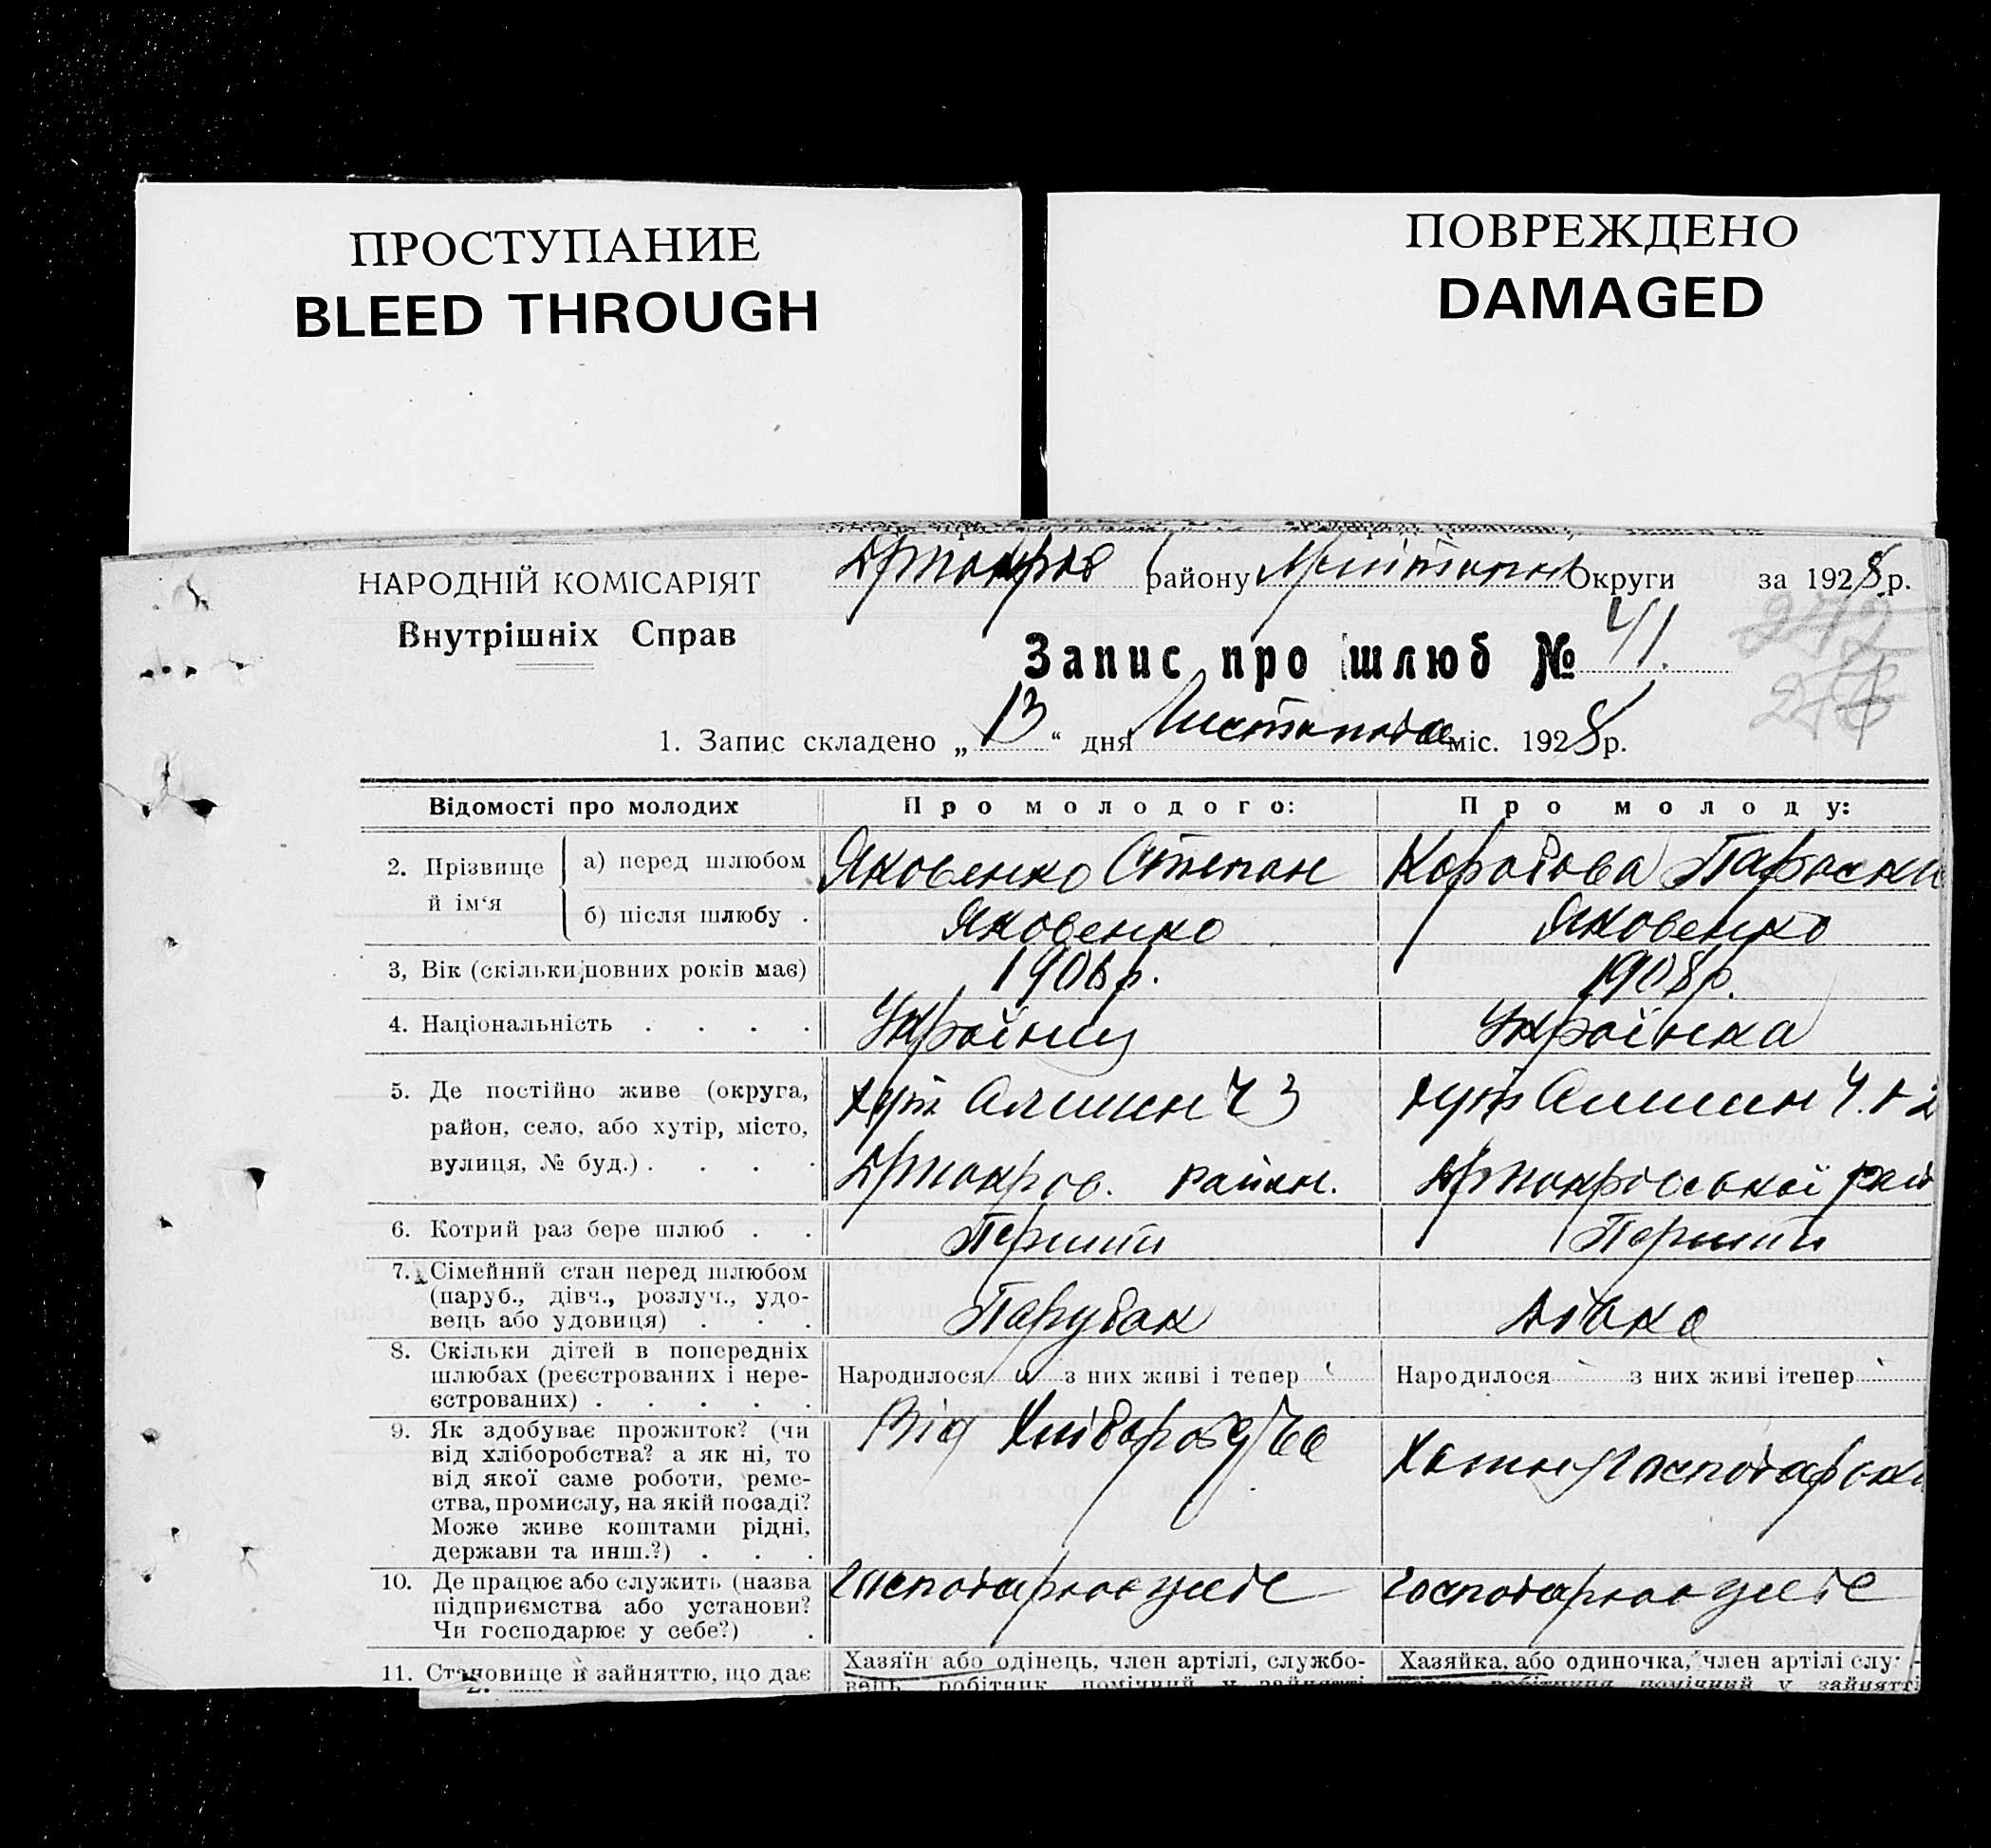 ПРОСТУПАНИЕ
BLEED THROUGH
ПОВРЕЖДЕНО
DAMAGED
НАРОДНІЙ КОМІСАРІЯТ
Внутрішніх Справ
району Округи за 1928 р.
Запис про шлюб № 41.
1. Запис складено „13“ дня Листопада міс. 1928 р.
Відомості про молодих
Про молодого:
Про молоду:
2. Прізвище й ім‘я
а) перед шлюбом
Яковенко Степан
Параски
б) після шлюбу .
Яковенко
Яковенко
3, Вік (скільки повних років має)
1906 р.
1908 р.
4. Національність . . . .
Українец
Українка
5. Де постійно живе (округа,
район, село, або хутір, місто,
вулиця, № буд.) . . . .
хут
район.
хутір
6. Котрий раз бере шлюб . .
Перший
Перший
7. Сімейний стан перед шлюбом
(паруб., дівч., розлуч., удо-
вець або удовиця) . . .
Парубак
Дівка
8. Скільки дітей в попередніх
шлюбах (реєстрованих і нере-
єстрованих) . . . . .
Народилося з них живі і тепер
Народилося з них живі ітепер
9. Як здобуває прожиток? (чи
від хліборобства? а як ні, то
від якої саме роботи, реме-
ства, промислу, на якій посаді?
Може живе коштами рідні,
держави та инш.?) . . .
Від
10. Де працює або служить (назва
підприємства або установи?
Чи господарює у себе?) .
господарює у себе
господарює у себе
11. Становище в зайняттю, що дає
Хазяїн або одінець, член артілі, службо-
вець, робітник, помічний у зайнятті
Хазяйка, або одиночка, член артілі слу-
робітниця помічний у зайнятті